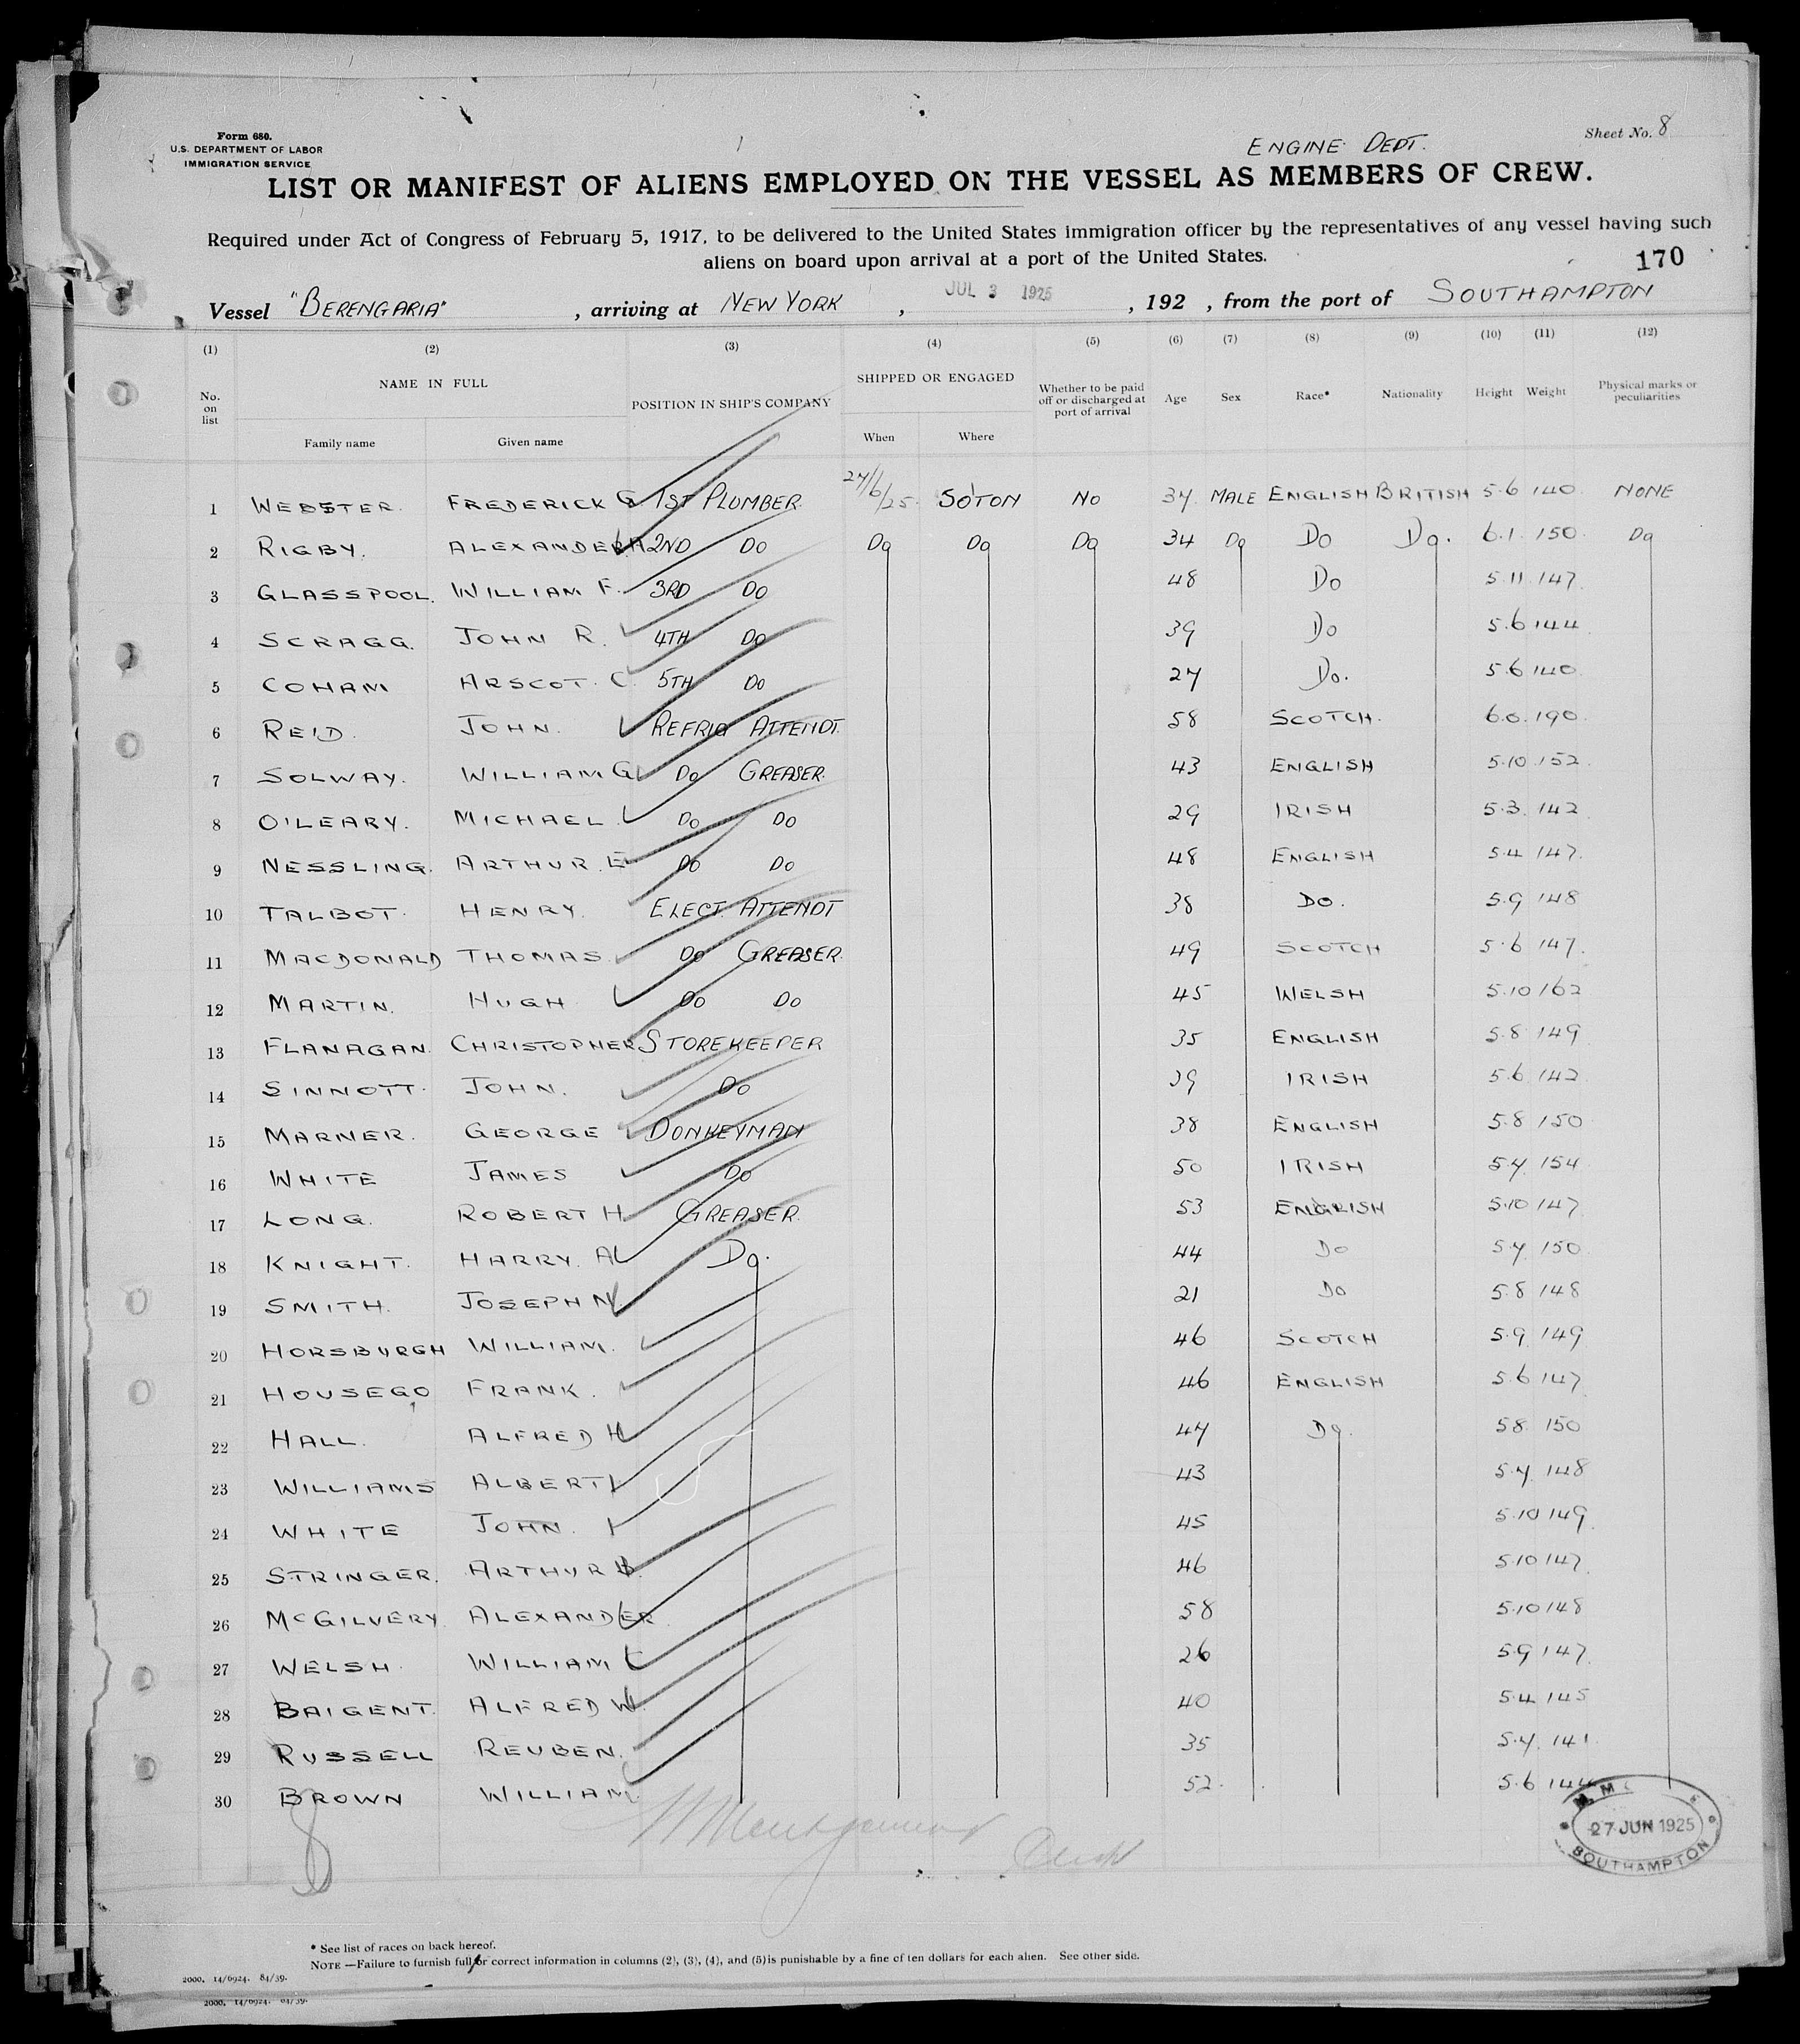 Form 680.
U.S. DEPARTMENT OF LABOR
IMMIGRATION SERVICE
ENGINE DEPT.
Sheet No. 8
LIST OR MANIFEST OF ALIENS EMPLOYED ON THE VESSEL AS MEMBERS OF CREW.
Required under Act of Congress of February 5, 1917, to be delivered to the United States immigration officer by the representatives of any vessel having such
aliens on board upon arrival at a port of the United States.
170
Vessel "BERENGARIA", arriving at NEW YORK, JUL 3 1925, 192 , from the port of SOUTHAMPTON
(1) (2) (3) (4) (5) (6) (7) (8) (9) (10) (11) (12)
No. on list NAME IN FULL Family name Given name POSITION IN SHIP'S COMPANY SHIPPED OR ENGAGED When Where Whether to be paid off or discharged at port of arrival Age Sex Race* Nationality Height Weight Physical marks or peculiarities
1 WEBSTER. FREDERICK G. 1ST PLUMBER. 24/6/25. SO'TON NO 34 MALE ENGLISH BRITISH 5.6 140 NONE
2 RIGBY. ALEXANDER H 2ND DO DO DO DO 34 DO DO DO. 6.1. 150. DO
3 GLASSPOOL. WILLIAM F. 3RD DO 48 DO 5.11. 147.
4 SCRAGG. JOHN R. 4TH DO 39 DO 5.6 144
5 COHAM ARSCOT. C. 5TH DO 27 DO. 5.6 140
6 REID. JOHN. REFRIG ATTENDT. 58 SCOTCH. 6.0. 190.
7 SOLWAY. WILLIAM G DO GREASER. 43 ENGLISH 5.10 152.
8 O'LEARY. MICHAEL. DO DO 29 IRISH 5.3. 142
9 NESSLING. ARTHUR. E DO DO 48 ENGLISH 5.4 147.
10 TALBOT. HENRY. ELECT ATTENDT 38 DO. 5.9 148
11 MACDONALD THOMAS. DO GREASER. 49 SCOTCH 5.6 147.
12 MARTIN. HUGH DO DO 45 WELSH 5.10 162
13 FLANAGAN. CHRISTOPHER. STOREKEEPER 35 ENGLISH 5.8 149
14 SINNOTT. JOHN. DO 39 IRISH 5.6 142
15 MARNER. GEORGE DONKEYMAN 38 ENGLISH 5.8 150
16 WHITE JAMES DO 50 IRISH 5.7. 154
17 LONG. ROBERT H. GREASER. 53 ENGLISH 5.10 147
18 KNIGHT. HARRY. A DO. 44 DO 5.7. 150
19 SMITH. JOSEPH N 21 DO 5.8 148
20 HORSBURGH WILLIAM. 46 SCOTCH 5.9. 149
21 HOUSEGO FRANK. 46 ENGLISH 5.6 147
22 HALL. ALFRED H 47 DO. 5.8. 150
23 WILLIAMS ALBERT 43 5.7. 148
24 WHITE JOHN. 45 5.10 149.
25 STRINGER. ARTHUR 46 5.10 147.
26 MCGILVERY ALEXANDER 58 5.10 148
27 WELSH. WILLIAM 26 5.9 147.
28 BAIGENT. ALFRED W. 40 5.4 145
29 RUSSELL REUBEN. 35 5.7. 141.
30 BROWN WILLIAM. 52. 5.6 144
27 JUN 1925
SOUTHAMPTON
* See list of races on back hereof.
NOTE —Failure to furnish full or correct information in columns (2), (3), (4), and (5) is punishable by a fine of ten dollars for each alien. See other side.
2000, 14/6924. 84/39.
2000, 14/6924. 84/39.